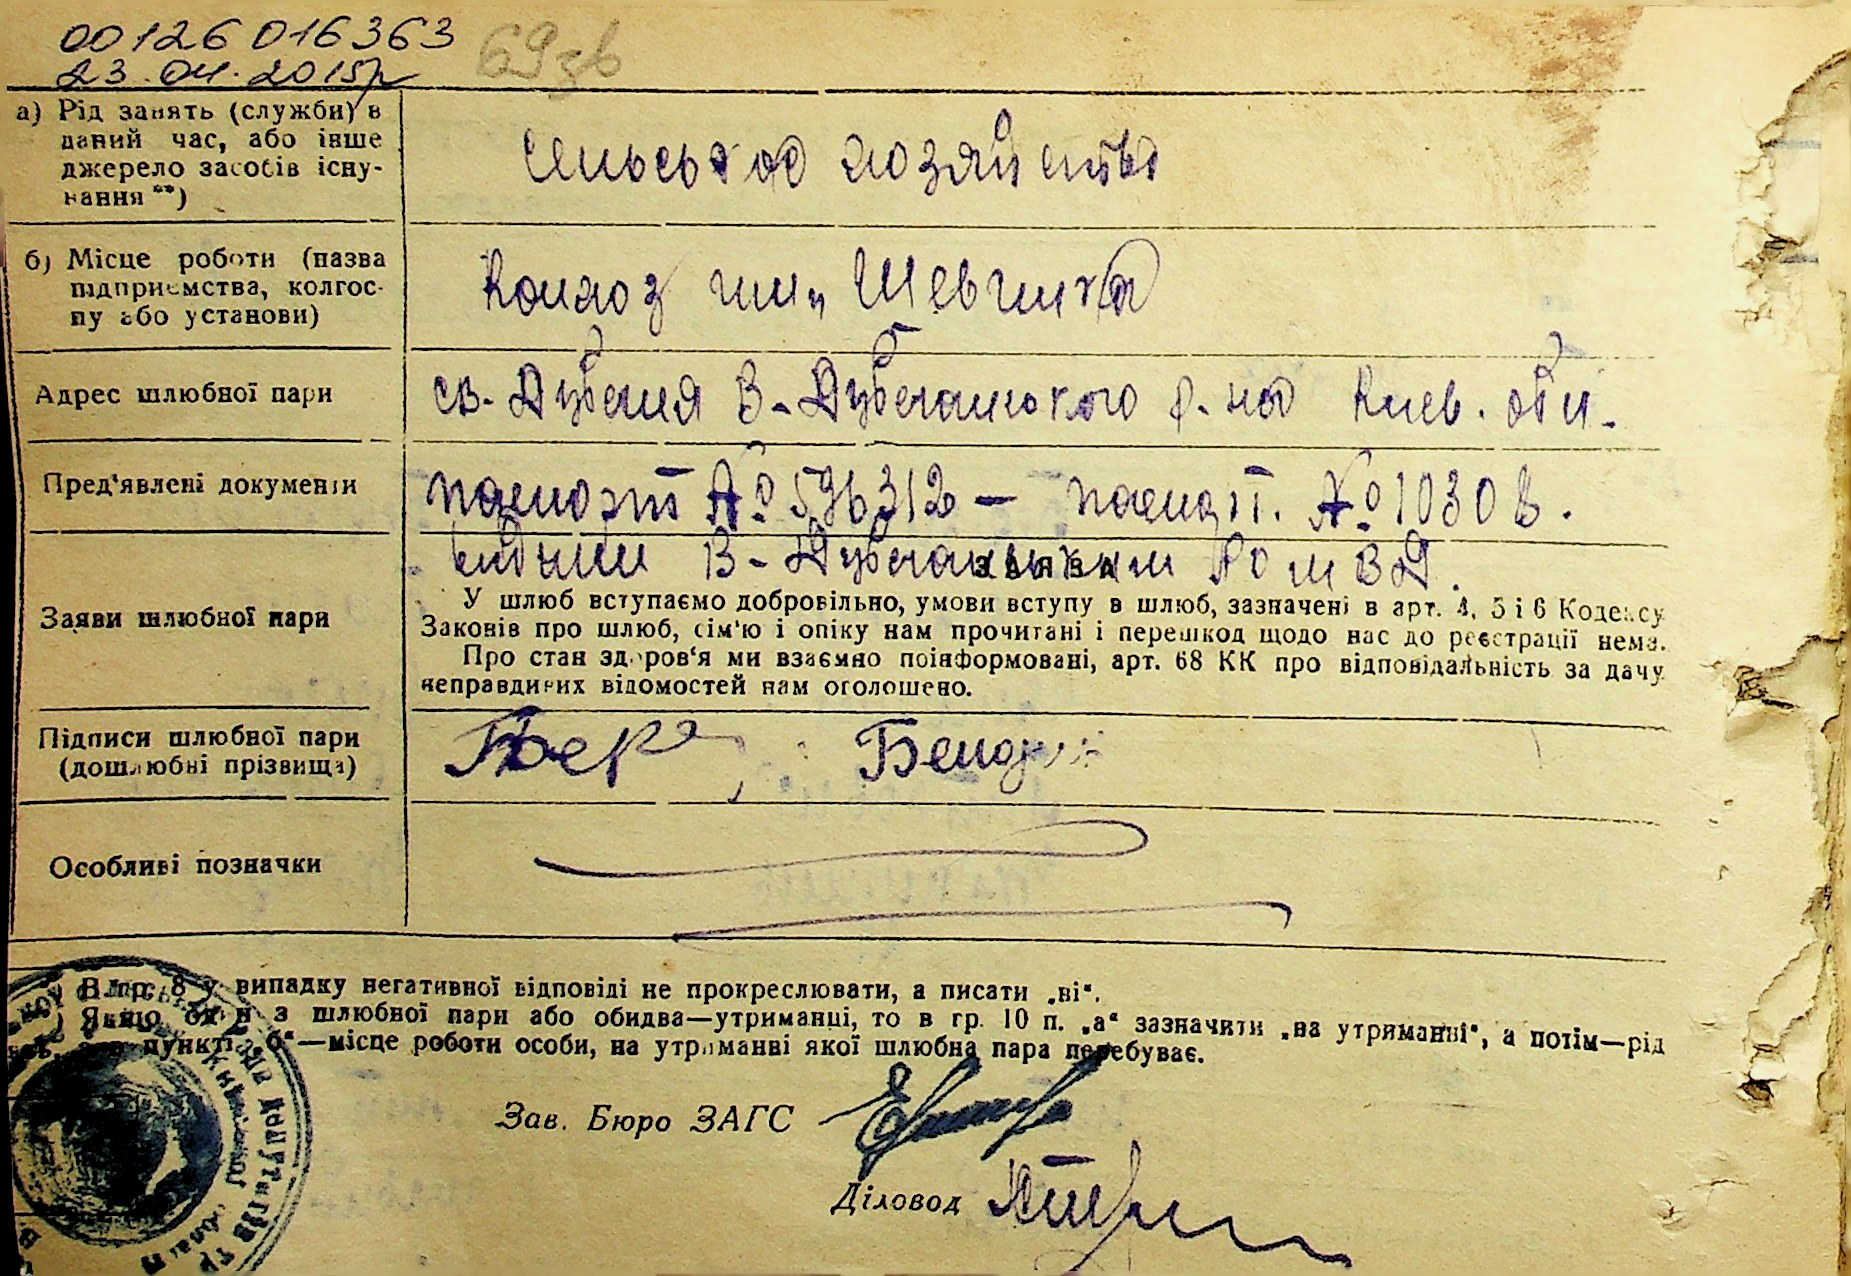 00126016363
23.04.2015р
69зв
а) Рід занять (служби) в
даний час, або інше
джерело засобів існу-
вання **)
сельськое хозяйство
б) Місце роботи (назва
підприємства, колгос-
пу або установи)
Колхоз им. Шевченка
Адрес шлюбної пари
В-Дубечанского р-на Киев. обл.
Пред'явлені документи
паспорт № 596312 — паспорт. № 10303.
видани В-Дубечанським РО МВД.
ЗАЯВА
Заяви шлюбної пари
У шлюб вступаємо добровільно, умови вступу в шлюб, зазначені в арт. 4, 5 і 6 Кодексу
Законів про шлюб, сім'ю і опіку нам прочитані і перешкод щодо нас до реєстрації нема.
Про стан здоров'я ми взаємно поінформовані, арт. 68 КК про відповідальність за дачу
неправдивих відомостей нам оголошено.
Підписи шлюбної пари
(дошлюбні прізвища)
Особливі позначки
В гр. 8 у випадку негативної відповіді не прокреслювати, а писати „ні“.
Якщо один з шлюбної пари або обидва—утриманці, то в гр. 10 п. „а“ зазначити „на утриманні“, а потім—рід
пункті „б“—місце роботи особи, на утриманні якої шлюбна пара перебуває.
Зав. Бюро ЗАГС
Діловод